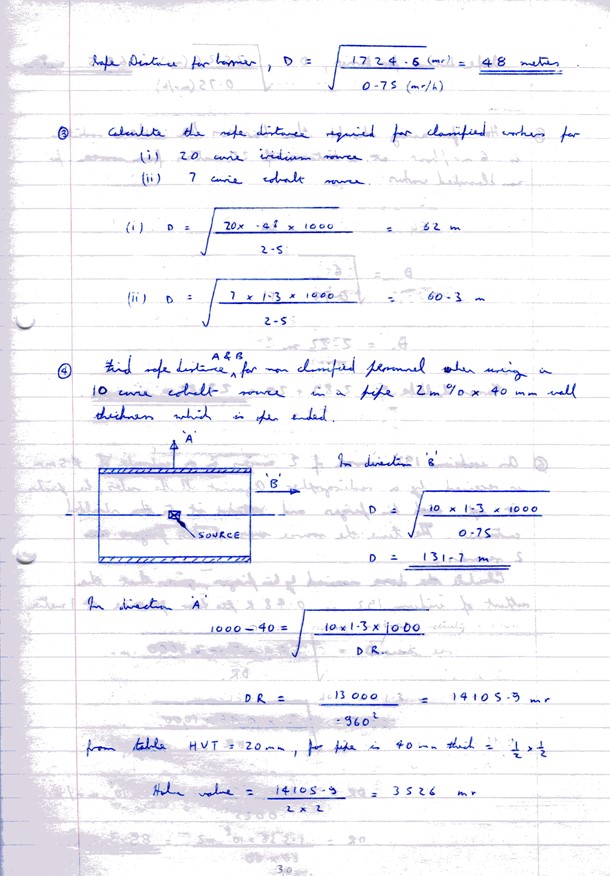 Safe Distance for barrier, D = √ 1724.6 (mr) / 0.75 (mr/h) = 48 metres.
③ Calculate the safe distance required for classified workers for
(i) 20 curie iridium source
(ii) 7 curie cobalt source.
(i) D = √ 20 x .48 x 1000 / 2.5 = 62 m
(ii) D = √ 7 x 1.3 x 1000 / 2.5 = 60.3 m
④ Find safe distance A & B for non classified personnel when using a
10 curie cobalt source in a pipe 2m O/D x 40 mm wall
thickness which is open ended.
'A'
In direction 'B'
'B'
D = √ 10 x 1.3 x 1000 / 0.75
SOURCE
D = 131.7 m
In direction 'A'
1000-40 = √ 10 x 1.3 x 1000 / DR.
DR = 13000 / .960² = 14105.9 mr
from table HVT = 20mm, for pipe is 40 mm thick = ½ x ½
Halve value = 14105.9 / 2 x 2 = 3526 mr
30